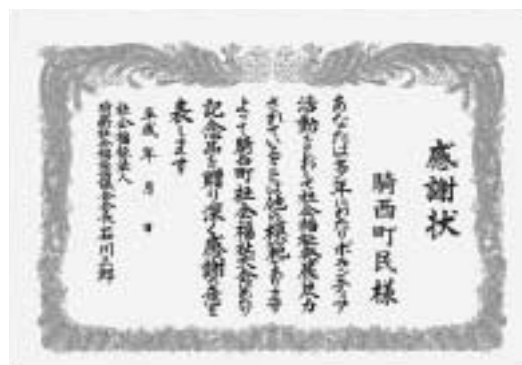 感謝状
騎西町民様
あなたは多年にわたりボランティア
活動をされ社会福祉発展に尽力
されていることは他の模範であります
よって騎西町社会福祉大会にあたり
記念品を贈り深く感謝の意を
表します
平成 年 月 日
社会福祉法人
騎西町社会福祉協議会会長 石川三郎